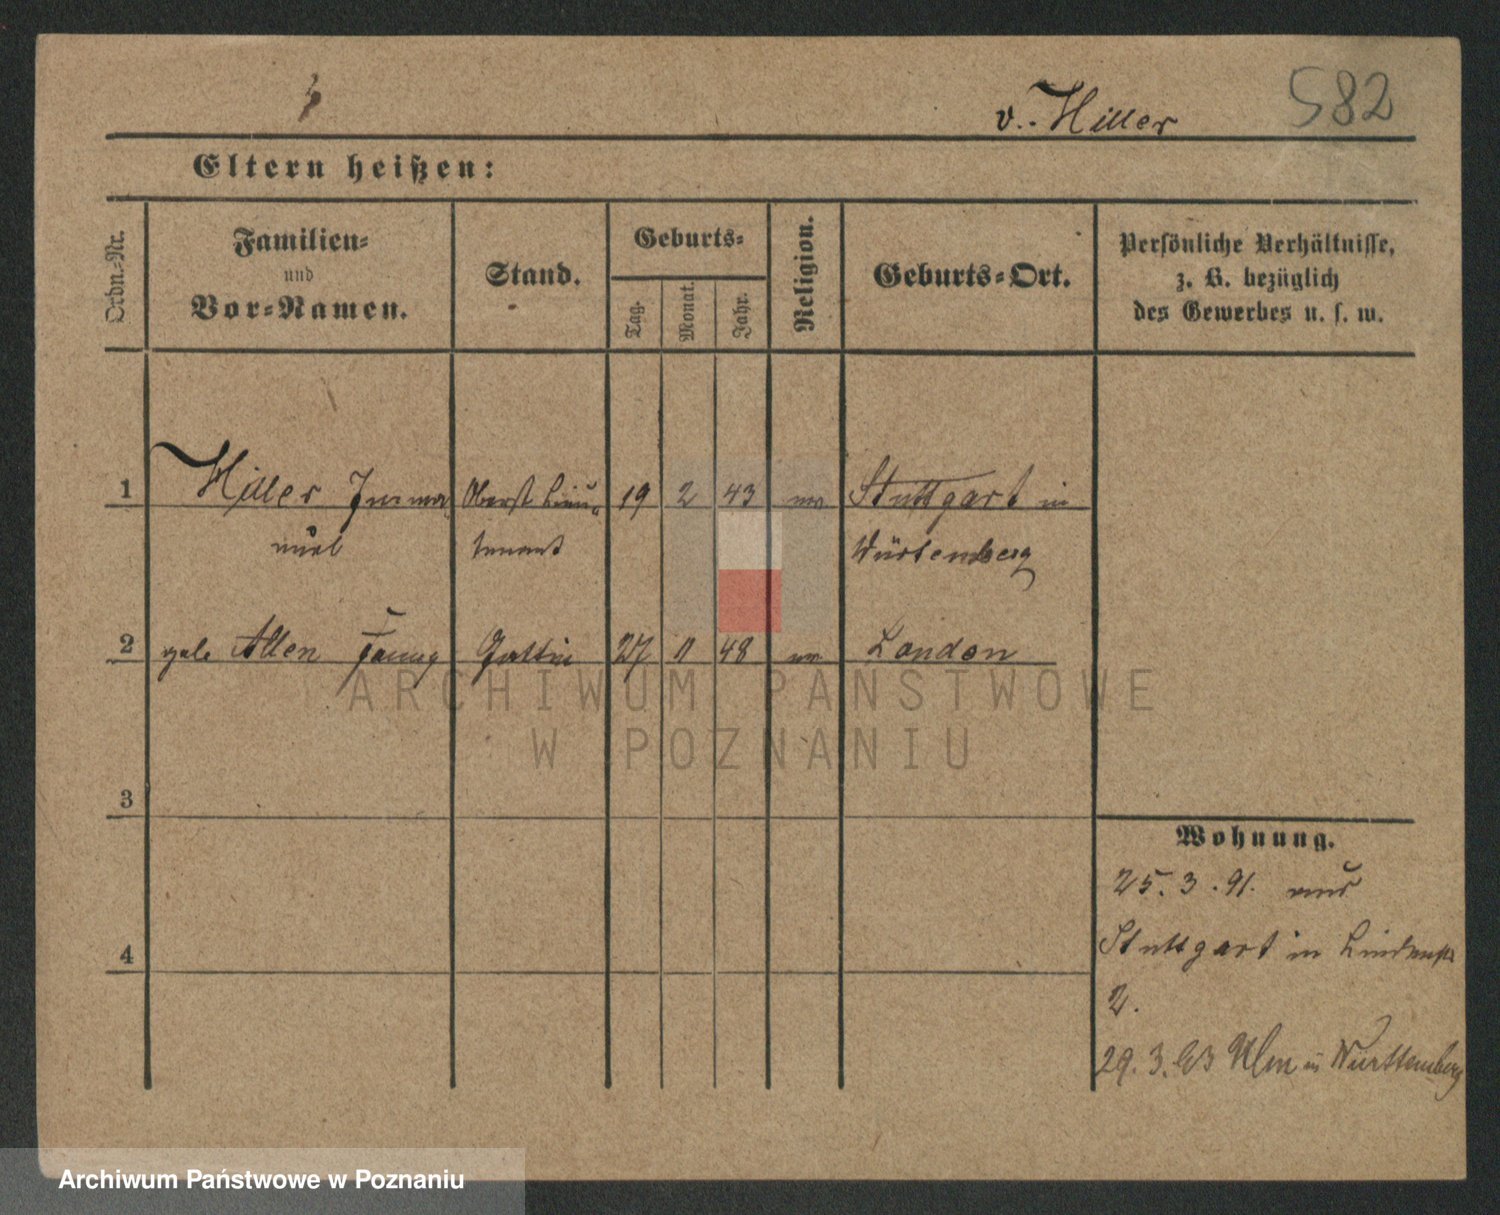 v. Hiller 582
Eltern heißen:
Ordn.-Nr.
Familien-
und
Vor-Namen.
Stand.
Geburts-
Tag.
Monat.
Jahr.
Religion.
Geburts-Ort.
Persönliche Verhältnisse,
z. B. bezüglich
des Gewerbes u. s. w.
1 Hiller Imma- Oberst Lieu- 19 2 43 ev Stuttgart in
nuel tenant Würtemberg
2 geb Allen Fanny Gattin 27 11 48 ev London
ARCHIWUM PAŃSTWOWE
W POZNANIU
3
Wohnung.
25.3.91. aus
4 Stuttgart in Lindenstr
2.
29.3.93 Ulm in Württemberg
Archiwum Państwowe w Poznaniu